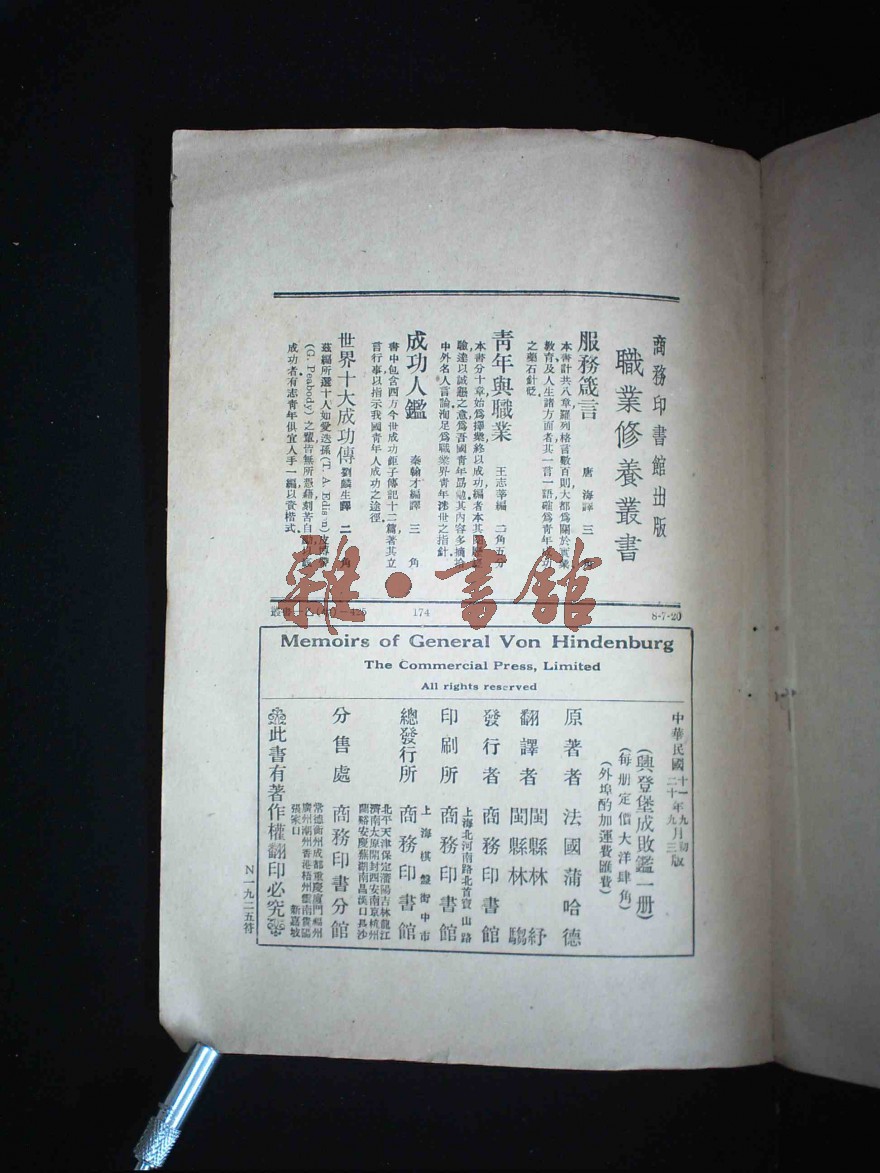 商務印書館出版
職業修養叢書
服務箴言 唐海譯 三角
本書計共八章羅列格言數百則大都爲關於實業
教育及人生諸方面者其一言一語確爲青年成功
之藥石針砭
青年與職業 王志莘編 二角五分
本書分十章始爲擇業終以成功編者本其
驗達以誠懇之意爲吾國青年勗勉其內容多摘給
中外名人言論洵足爲職業界青年涉世之指針
成功人鑑 秦翰才編譯 三角
書中包含西方今世成功鉅子傳記十二篇著其立
言行事以指示我國青年人成功之途徑
世界十大成功傳 劉麟生譯 二角
茲編所選十人如愛迭孫(T. A. Edison)皮博
(G. Peabody)之輩皆無所憑藉刻苦自勵
成功者有志青年俱宜人手一編以資楷式
174
8-7-20
Memoirs of General Von Hindenburg
The Commercial Press, Limited
All rights reserved
中華民國十一年九月初版
二十年九月三版
(興登堡成敗鑑一册)
(每册定價大洋肆角)
(外埠酌加運費匯費)
原著者 法國蒲哈德
翻譯者 閩縣林紓
閩縣林騶
發行者 商務印書館
上海北河南路北首寶山路
印刷所 商務印書館
上海棋盤街中市
總發行所 商務印書館
北平天津保定瀋陽吉林龍江
濟南太原開封西安南京杭州
蘭谿安慶蕪湖南昌漢口長沙
分售處 商務印書分館
常德衡州成都重慶廈門福州
廣州潮州香港梧州雲南貴陽
張家口 新嘉坡
此書有著作權翻印必究
N一九二五符
雜·書館